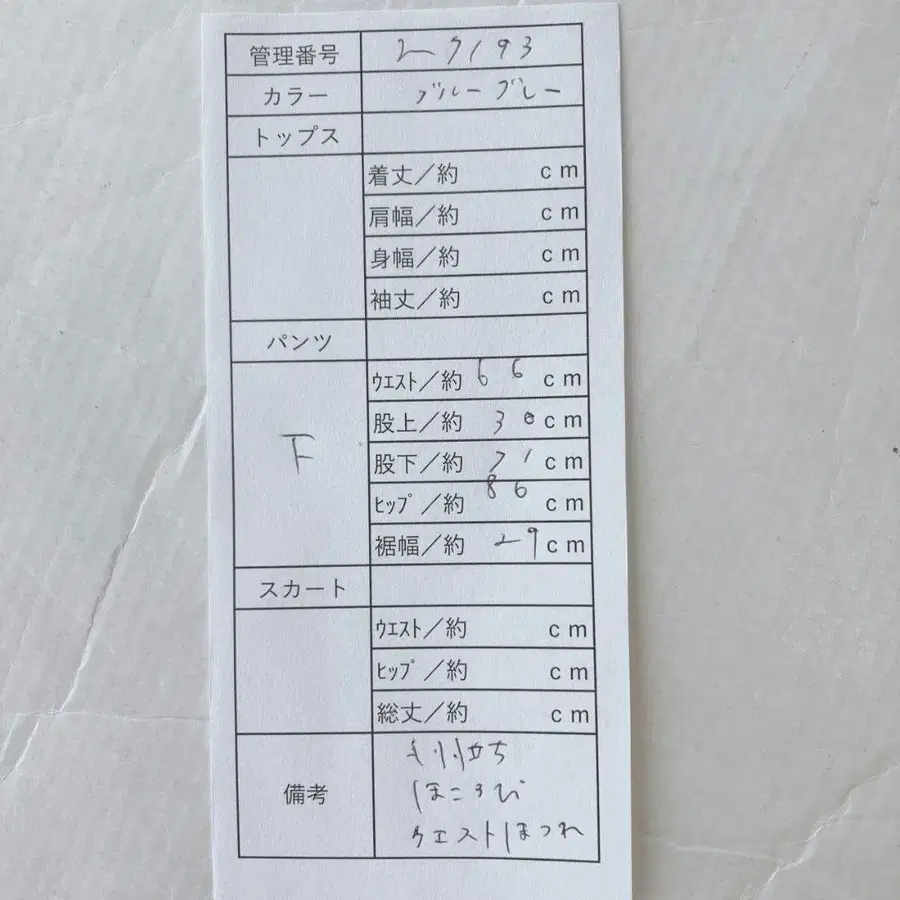 管理番号 27193
カラー ブルーグレー
トップス
着丈/約 cm
肩幅/約 cm
身幅/約 cm
袖丈/約 cm
パンツ
下
ｳｴｽﾄ/約 66 cm
股上/約 30 cm
股下/約 71 cm
ﾋｯﾌﾟ/約 86 cm
裾幅/約 29 cm
スカート
ｳｴｽﾄ/約 cm
ﾋｯﾌﾟ/約 cm
総丈/約 cm
備考
毛羽立ち
ほころび
ウエストほつれ